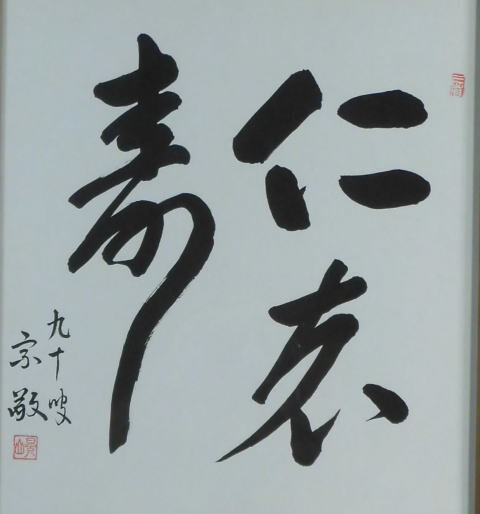 仁者
寿
九十叟
宗敬